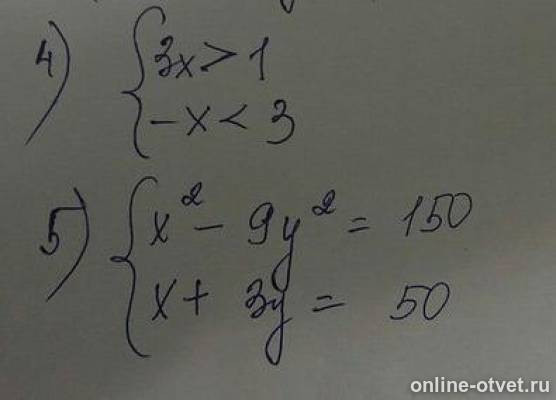 4) { 3x > 1
-x < 3
5) { x² - 9y² = 150
x + 3y = 50
online-otvet.ru